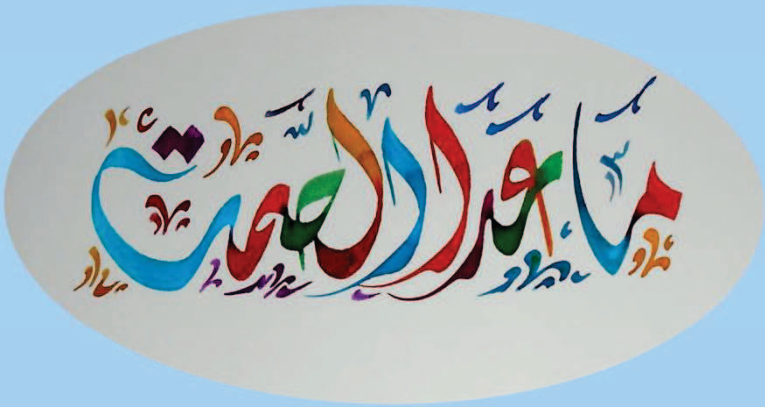 مَا عَدَا الصَّمْت